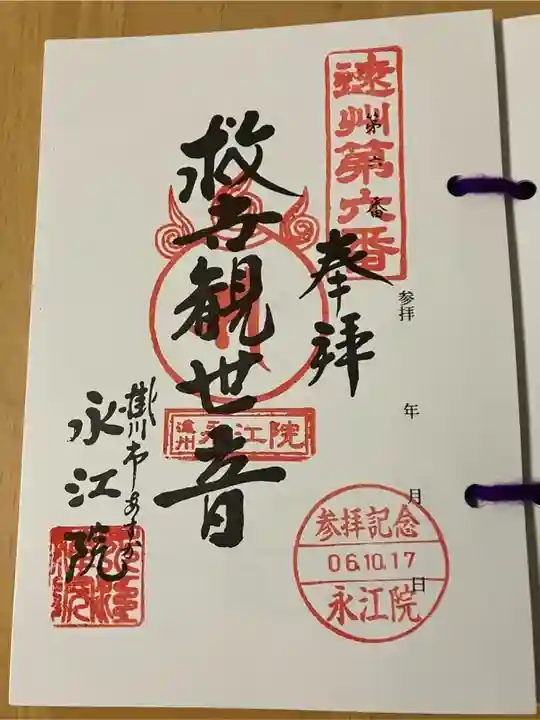 遠州第六番
第六番
奉拝
参拝
年
月
日
救世観世音
遠州
永江院
掛川市あすか
永江院
参拝記念
06.10.17
永江院